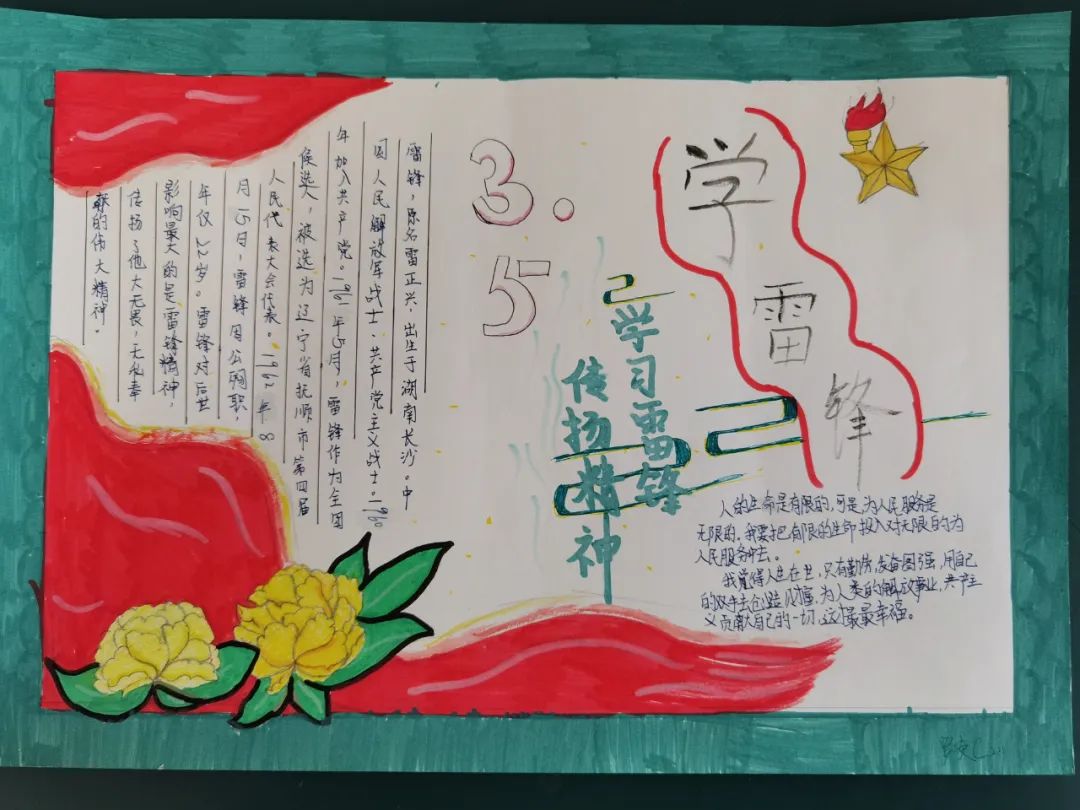 学
雷
锋
3.
5
学习雷锋
传扬精神
雷锋，原名雷正兴，出生于湖南长沙。中
国人民解放军战士、共产党主义战士。1960
年加入共产党。1961年5月，雷锋作为全国
候选人，被选为辽宁省抚顺市第四届
人民代表大会代表。1962年8
月15日，雷锋因公殉职
年仅22岁。雷锋对后世
影响最大的是雷锋精神，
传扬了他大无畏，无私奉
献的伟大精神。
人的生命是有限的，可是，为人民服务是
无限的，我要把有限的生命投入对无限的为
人民服务中去。
我觉得人生在世，只有勤劳，发奋图强，用自己
的双手去创造财富，为人类的解放事业，共产主
义贡献自己的一切，这才最最幸福。